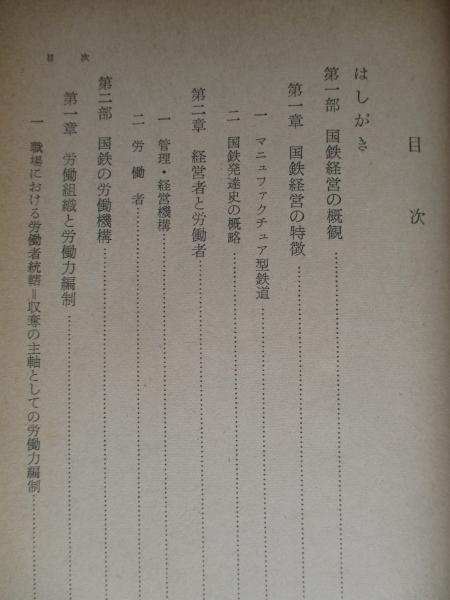 目次
はしがき
第一部 国鉄経営の概観
第一章 国鉄経営の特徴
一 マニュファクチュア型鉄道
二 国鉄発達史の概略
第二章 経営者と労働者
一 管理・経営機構
二 労働者
第二部 国鉄の労働機構
第一章 労働組織と労働力編制
一 職場における労働者統轄=収奪の主軸としての労働力編制
目次